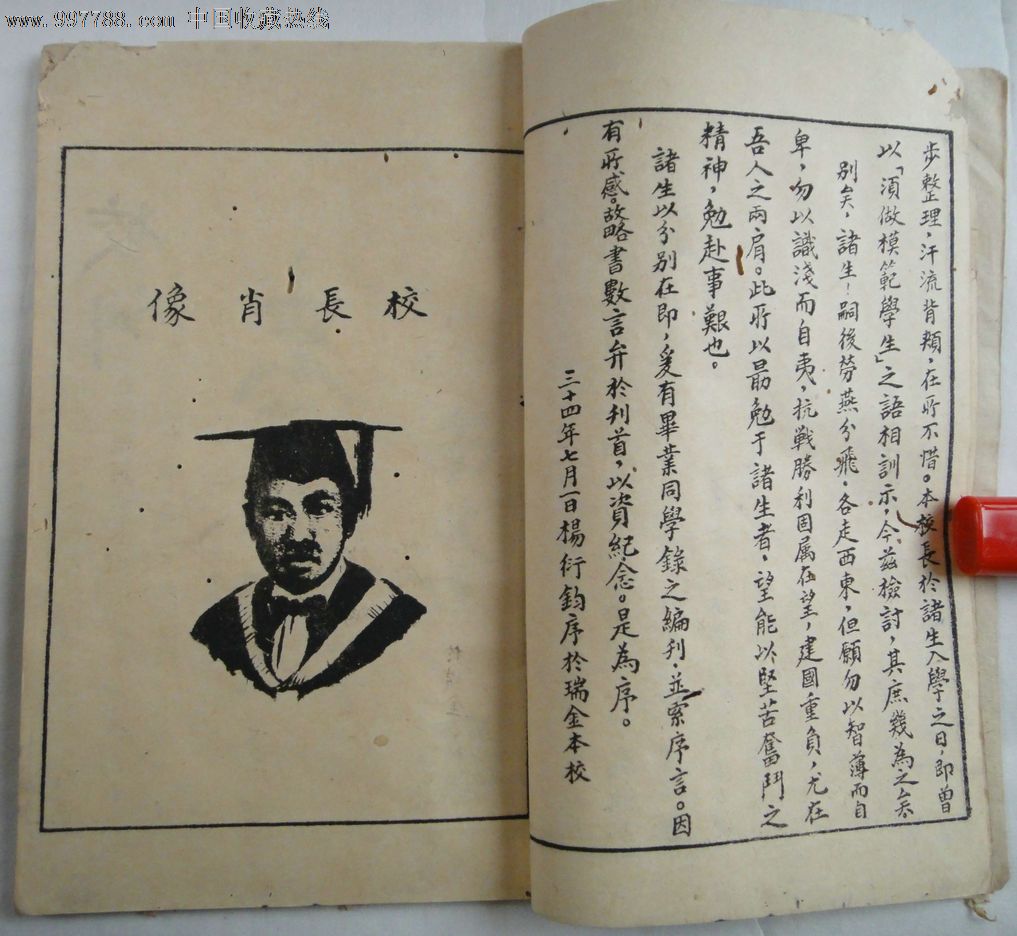 www.997788.com 中国收藏热线
步整理，汗流背頰，在所不惜。本校長於諸生入學之日，即曾
以「須做模範學生」之語相訓示，今茲檢討，其庶幾為之矣
別矣，諸生！嗣後勞燕分飛，各走西東，但願勿以智薄而自
卑，勿以識淺而自夷，抗戰勝利固属在望，建國重負，尤在
吾人之兩肩。此所以勗勉于諸生者，望能以堅苦奮鬥之
精神，勉赴事艱也。
諸生以分別在即，爰有畢業同學錄之編刋，並索序言。因
有所感。故略書數言弁於刋首，以資紀念。是為序。
三十四年七月一日楊衍鈞序於瑞金本校
校長肖像